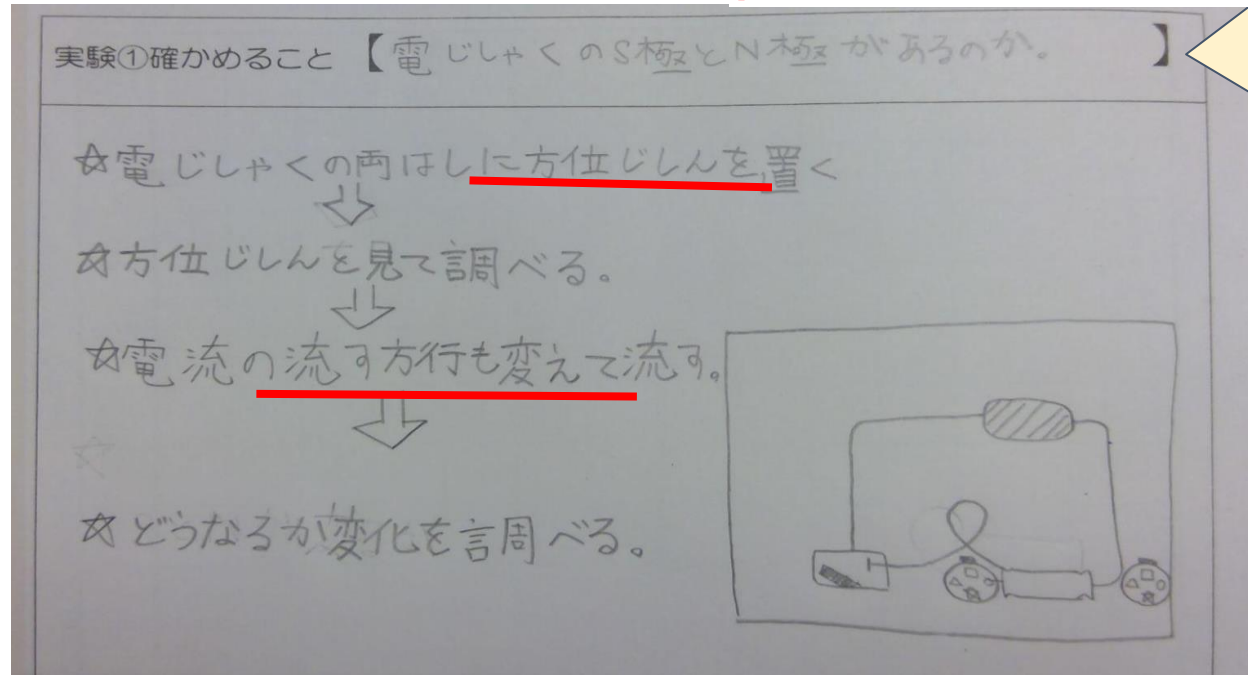 実験①確かめること 【電じしゃくのS極とN極があるのか。】
☆電じしゃくの両はしに方位じしんを置く
⇩
☆方位じしんを見て調べる。
⇩
☆電流の流す方行も変えて流す。
⇩
☆どうなるか変化を調べる。